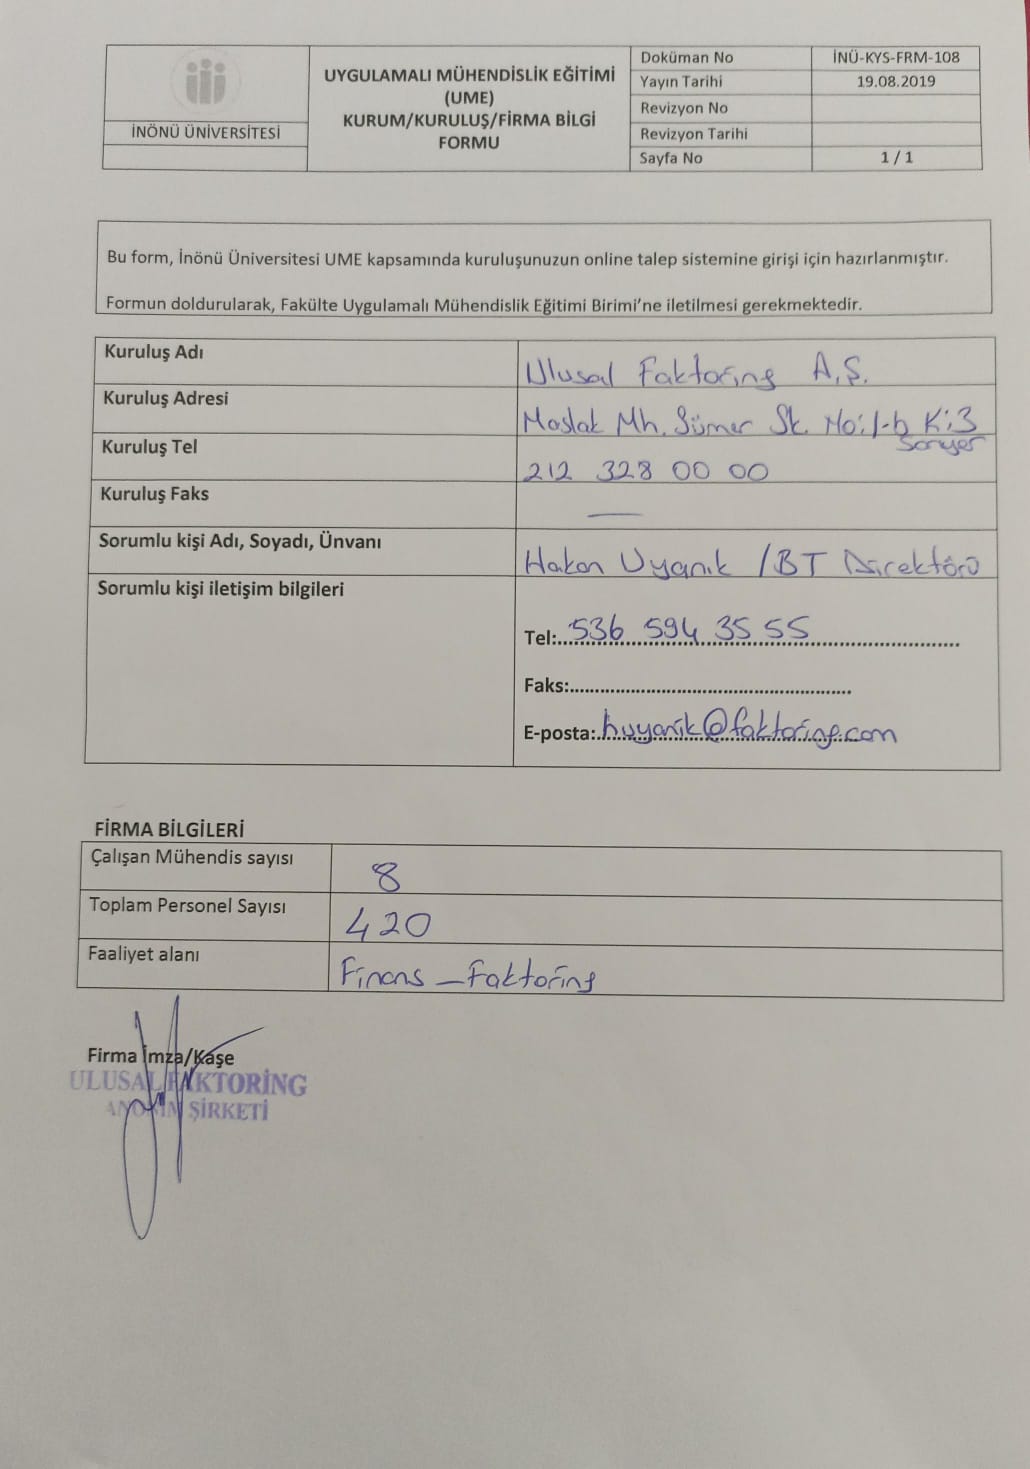 İNÖNÜ ÜNİVERSİTESİ
UYGULAMALI MÜHENDİSLİK EĞİTİMİ
(UME)
KURUM/KURULUŞ/FİRMA BİLGİ
FORMU
Doküman No İNÜ-KYS-FRM-108
Yayın Tarihi 19.08.2019
Revizyon No
Revizyon Tarihi
Sayfa No 1 / 1
Bu form, İnönü Üniversitesi UME kapsamında kuruluşunuzun online talep sistemine girişi için hazırlanmıştır.
Formun doldurularak, Fakülte Uygulamalı Mühendislik Eğitimi Birimi’ne iletilmesi gerekmektedir.
Kuruluş Adı Ulusal Faktoring A.Ş.
Kuruluş Adresi Maslak Mh. Sümer Sk. No:1-b K:3
Sarıyer
Kuruluş Tel 212 328 00 00
Kuruluş Faks —
Sorumlu kişi Adı, Soyadı, Ünvanı Hakan Uyanık /BT Direktörü
Sorumlu kişi iletişim bilgileri
Tel:...536 594 35 55
Faks:
E-posta:.huyanik@faktoring.com
FİRMA BİLGİLERİ
Çalışan Mühendis sayısı 8
Toplam Personel Sayısı 420
Faaliyet alanı Finans – Faktoring
Firma İmza/Kaşe
ULUSAL FAKTORİNG
ANONİM ŞİRKETİ